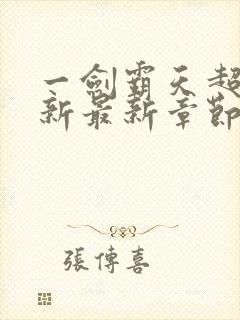 一劍霸天超
新最新章節
張傳喜